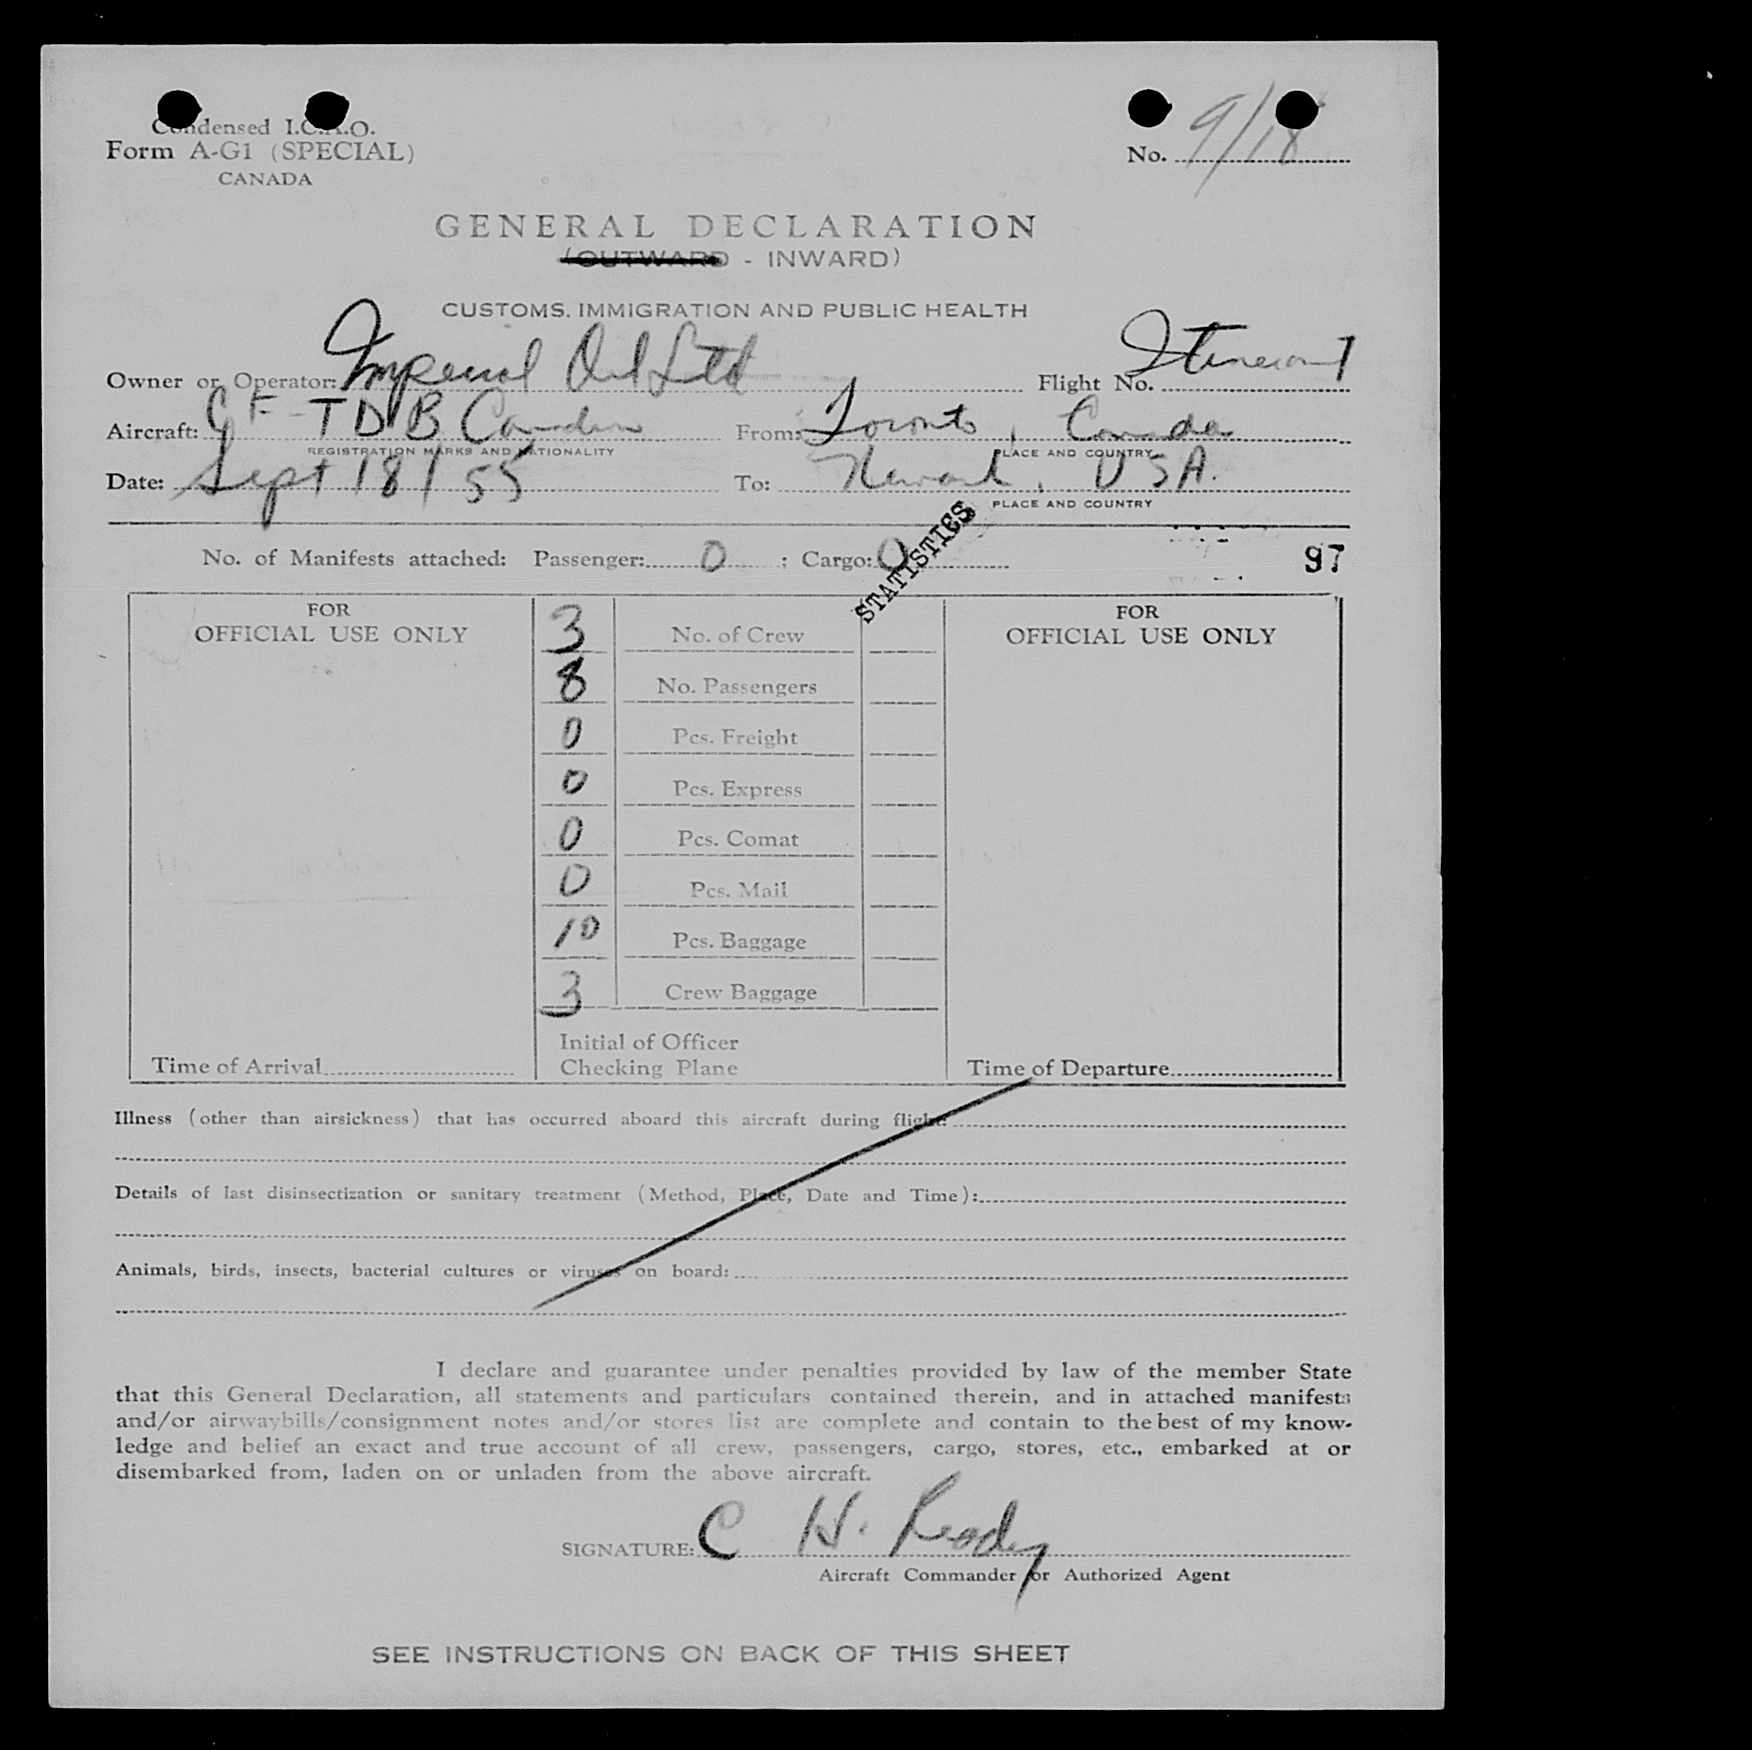 Condensed I.C.A.O.
Form A-G1 (SPECIAL)
CANADA
No. 9/18
GENERAL DECLARATION
(OUTWARD - INWARD)
CUSTOMS, IMMIGRATION AND PUBLIC HEALTH
Owner or Operator: Imperial Oil Ltd Flight No. Itinerant
Aircraft: CF-TDB Canadian From: Toronto, Canada
REGISTRATION MARKS AND NATIONALITY PLACE AND COUNTRY
Date: Sept 18/55 To: Newark, USA.
PLACE AND COUNTRY
STATISTICS
No. of Manifests attached: Passenger: 0 ; Cargo: 0 97
FOR
OFFICIAL USE ONLY
3 No. of Crew
8 No. Passengers
0 Pcs. Freight
0 Pcs. Express
0 Pcs. Comat
0 Pcs. Mail
10 Pcs. Baggage
3 Crew Baggage
Initial of Officer
Checking Plane
Time of Arrival
FOR
OFFICIAL USE ONLY
Time of Departure
Illness (other than airsickness) that has occurred aboard this aircraft during flight:
Details of last disinsectization or sanitary treatment (Method, Place, Date and Time):
Animals, birds, insects, bacterial cultures or viruses on board:
I declare and guarantee under penalties provided by law of the member State
that this General Declaration, all statements and particulars contained therein, and in attached manifests
and/or airwaybills/consignment notes and/or stores list are complete and contain to the best of my know-
ledge and belief an exact and true account of all crew, passengers, cargo, stores, etc., embarked at or
disembarked from, laden on or unladen from the above aircraft.
SIGNATURE: C H. Ready
Aircraft Commander or Authorized Agent
SEE INSTRUCTIONS ON BACK OF THIS SHEET